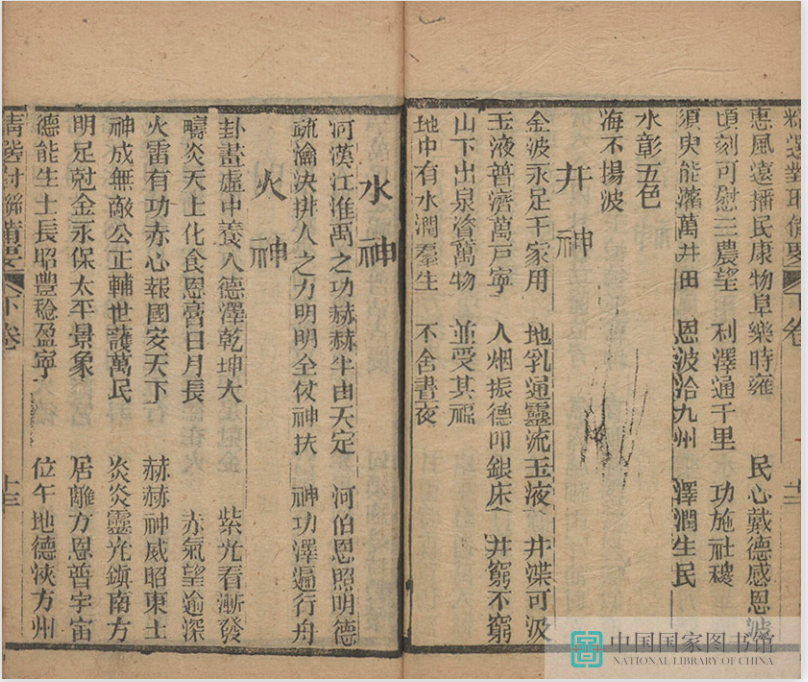 精選對聯備要 下卷
惠風遠播民康物阜樂時雍 民心戴德感恩波
頃刻可慰三農望 利澤通千里 功施社稷
須臾能灌萬井田 恩波洽九州 澤潤生民
水彰五色
海不揚波
井神
金波永足千家用 地乳通靈流玉液 井渫可汲
玉液普濟萬戶寧 人烟振德叩銀床 井窮不窮
山下出泉資萬物 並受其福
地中有水潤羣生 不舍晝夜
水神
河漢江淮禹之功赫赫半由天定 河伯恩照明德
疏瀹決排人之力明明全仗神扶 神功澤遍行舟
火神
卦畫虛中養人德澤乾坤大 紫光看漸發
疇炎天上化食恩膏日月長 赤氣望逾深
火雷有功赤心報國安天下 赫赫神威昭東土
神成無敵公正輔世護萬民 炎炎靈光鎮南方
明足尅金永保太平景象 居離方恩普宇宙
德能生土長昭豐稔盈寧 位午地德浹方州
精選對聯備要 下卷 十三
中国国家图书馆
NATIONAL LIBRARY OF CHINA